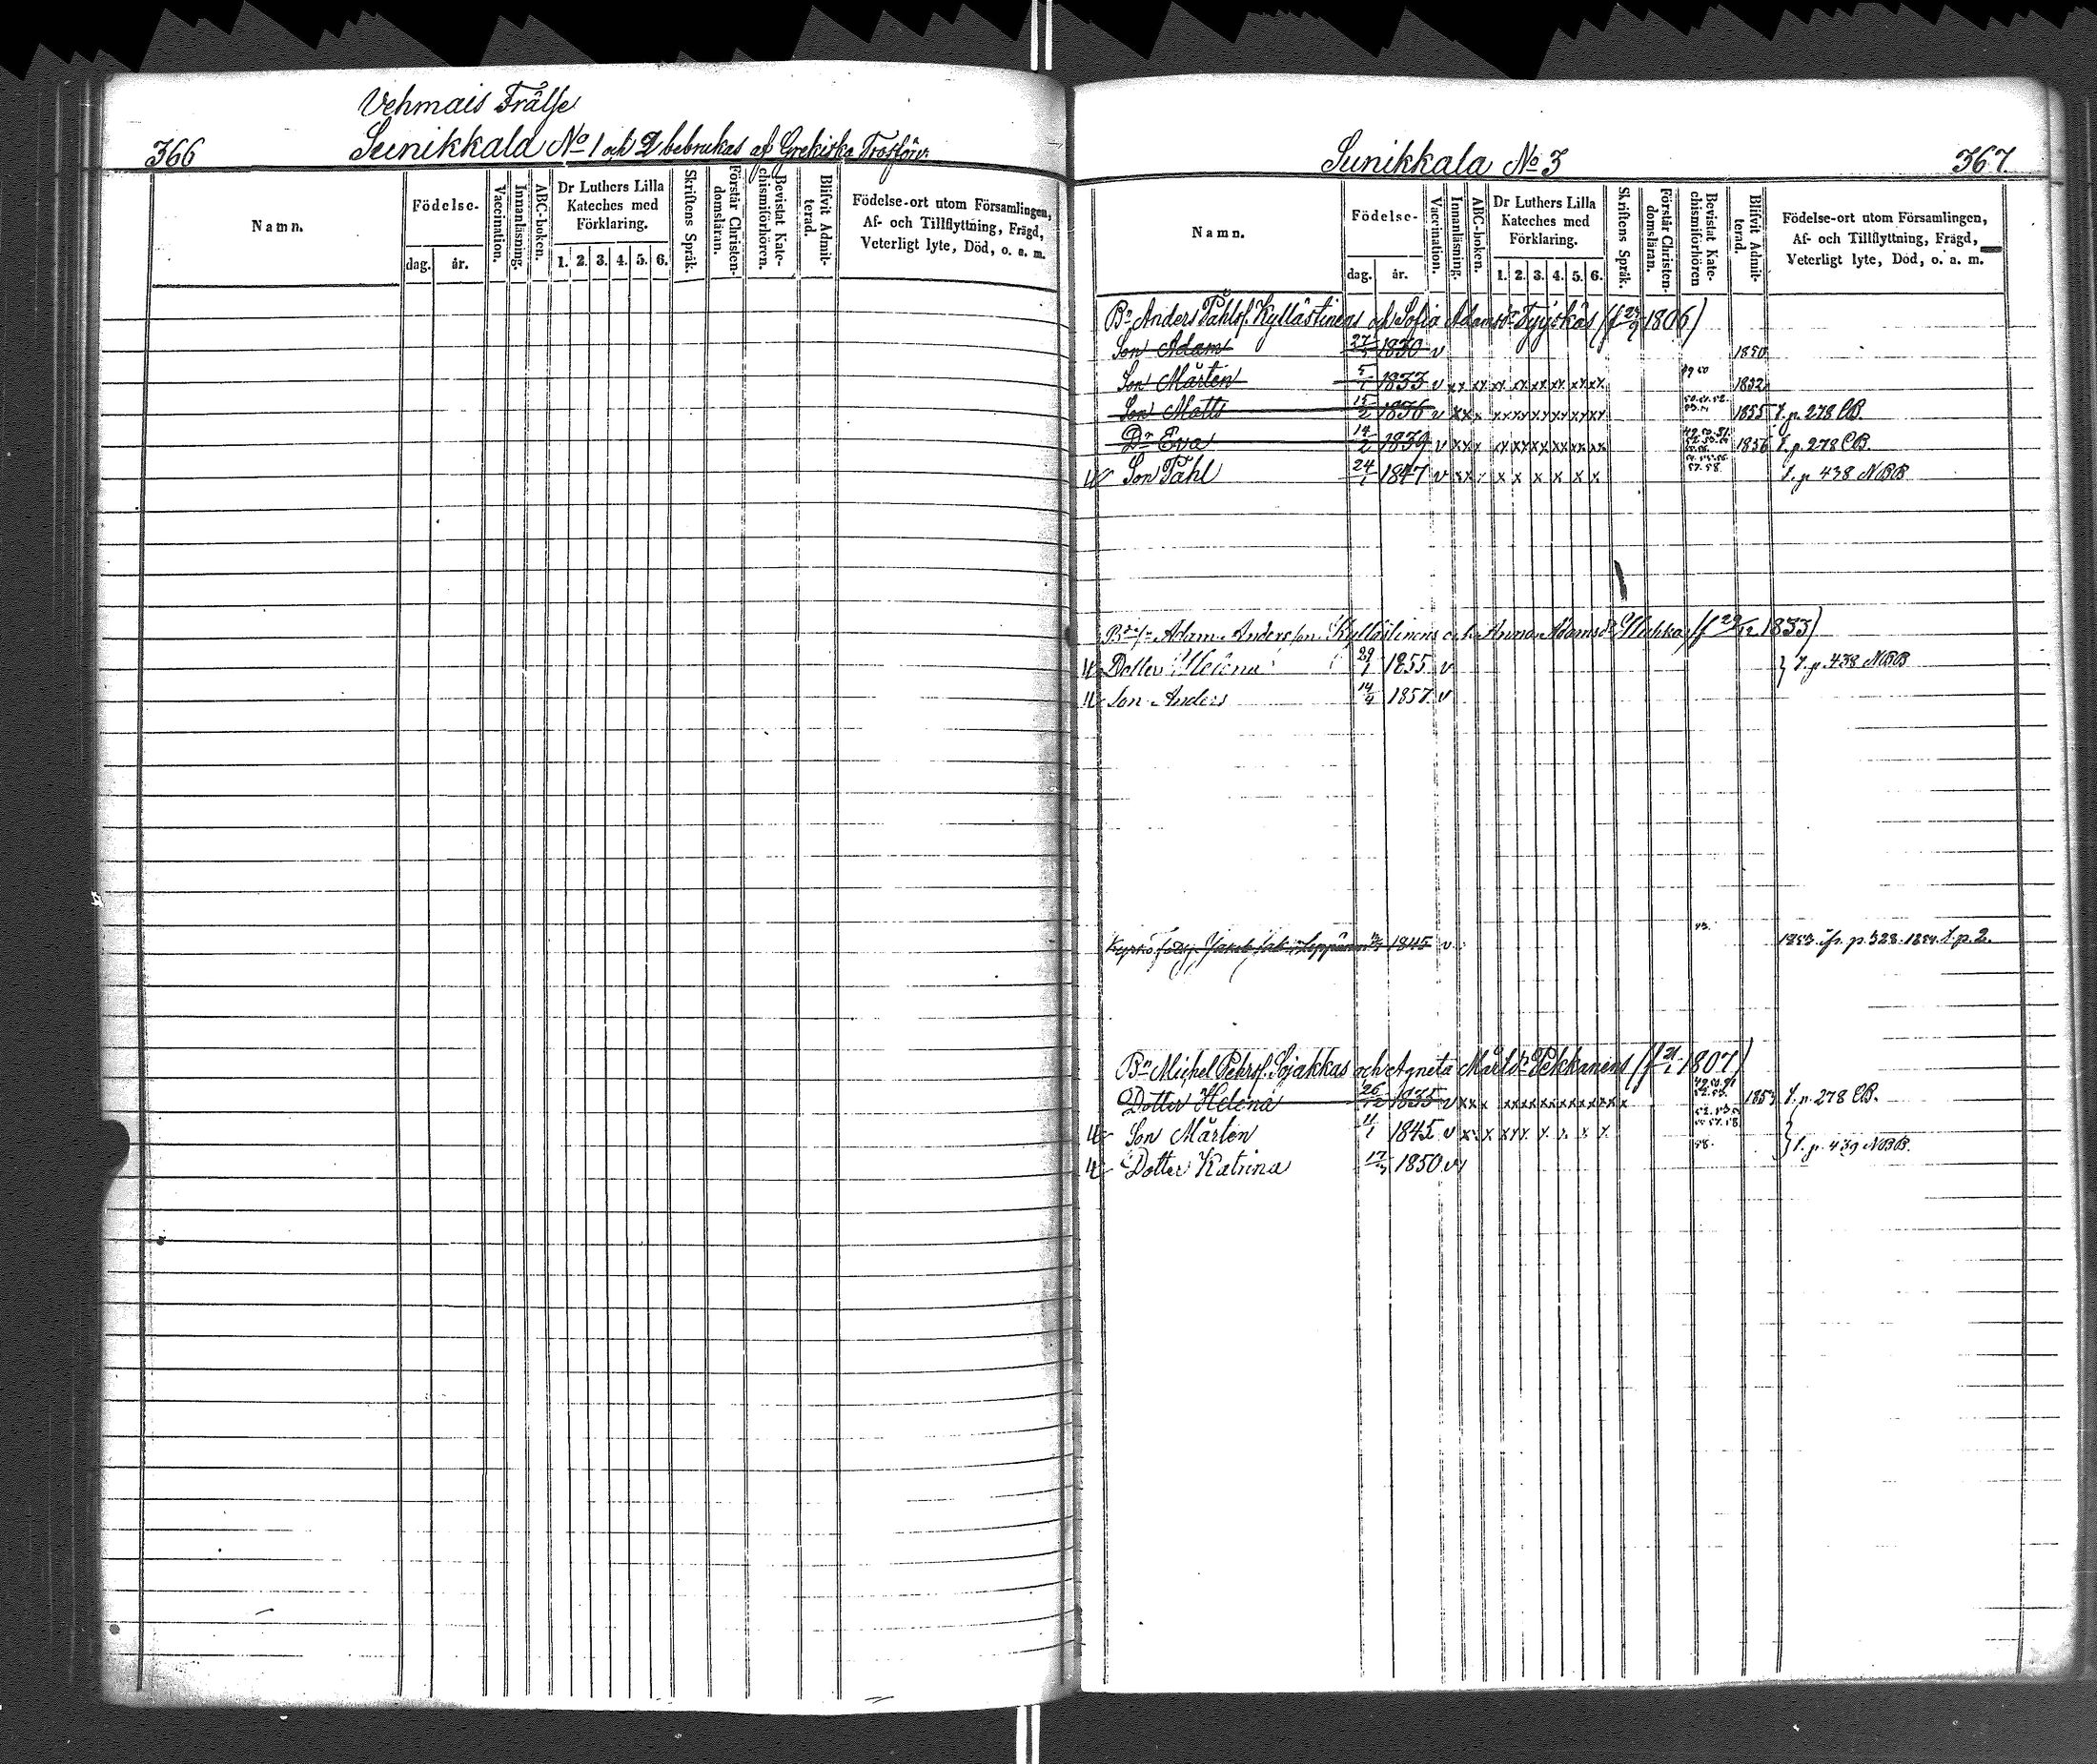 Vehmais Frälse
366
Sunikkala No 1 och 2 bebrukas af Grekiska Trosförv.
Namn.
Födelse-
dag.
år.
Vaccination.
Innanläsning.
ABC-boken.
Dr Luthers Lilla
Kateches med
Förklaring.
1. 2. 3. 4. 5. 6.
Skriftens Språk.
Förstår Christen-
domsläran.
Bevistat Kate-
chismiförhören.
Blifvit Admit-
terad.
Födelse-ort utom Församlingen,
Af- och Tillflyttning, Frägd,
Veterligt lyte, Död, o. a. m.
Sunikkala No 3
367.
Namn.
Födelse-
dag.
år.
Vaccination.
Innanläsning.
ABC-boken.
Dr Luthers Lilla
Kateches med
Förklaring.
1. 2. 3. 4. 5. 6.
Skriftens Språk.
Förstår Christen-
domsläran.
Bevistat Kate-
chismiförhören
Blifvit Admit-
terad.
Födelse-ort utom Församlingen,
Af- och Tillflyttning, Frägd,
Veterligt lyte, Död, o. a. m.
Bn Anders Påhls. Kyllästinens och Sofia Adamsdr Tyyskäs (f 1806)
Son Adam 1830 v 1850
Son Mårten 5/1 1833 v xx xx xx xx xx xx xx xx 49 50 1852
Son Matts 15/2 1836 v xx x xx xx xx xx xx xx 1855 t. p. 278 CB.
Dr Eva 14/2 1839 v xx x xx xx xx xx xx xx 1856 t. p. 278 CB.
Son Påhl 24/1 1847 v xx x x x x x x x 57. 58. t. p 438 NBB
Adam Andersson Kyllästinens och Anna Adamsdr (f 29/12 1833)
Dotter Helena 29/1 1855 v } t. p. 438 NBB
Son Anders 14/4 1857 v
Jakob Leppänen 1845 v 53. 1853 ifr. p. 328. 1854 t. p. 2.
Bn Michel Pehrs. Sojakkas och Agneta Mårtsdr Pekkanens (f 21/1 1807)
Dotter Helena 26/12 1835 v xx x xx xx xx xx xx xx x 49 50 51 52. 53. 1853 t. p. 278 CB.
Son Mårten 11/1 1845 v x x xx x x x x } t. p. 439 NBB.
Dotter Katrina 17/3 1850 v 58.